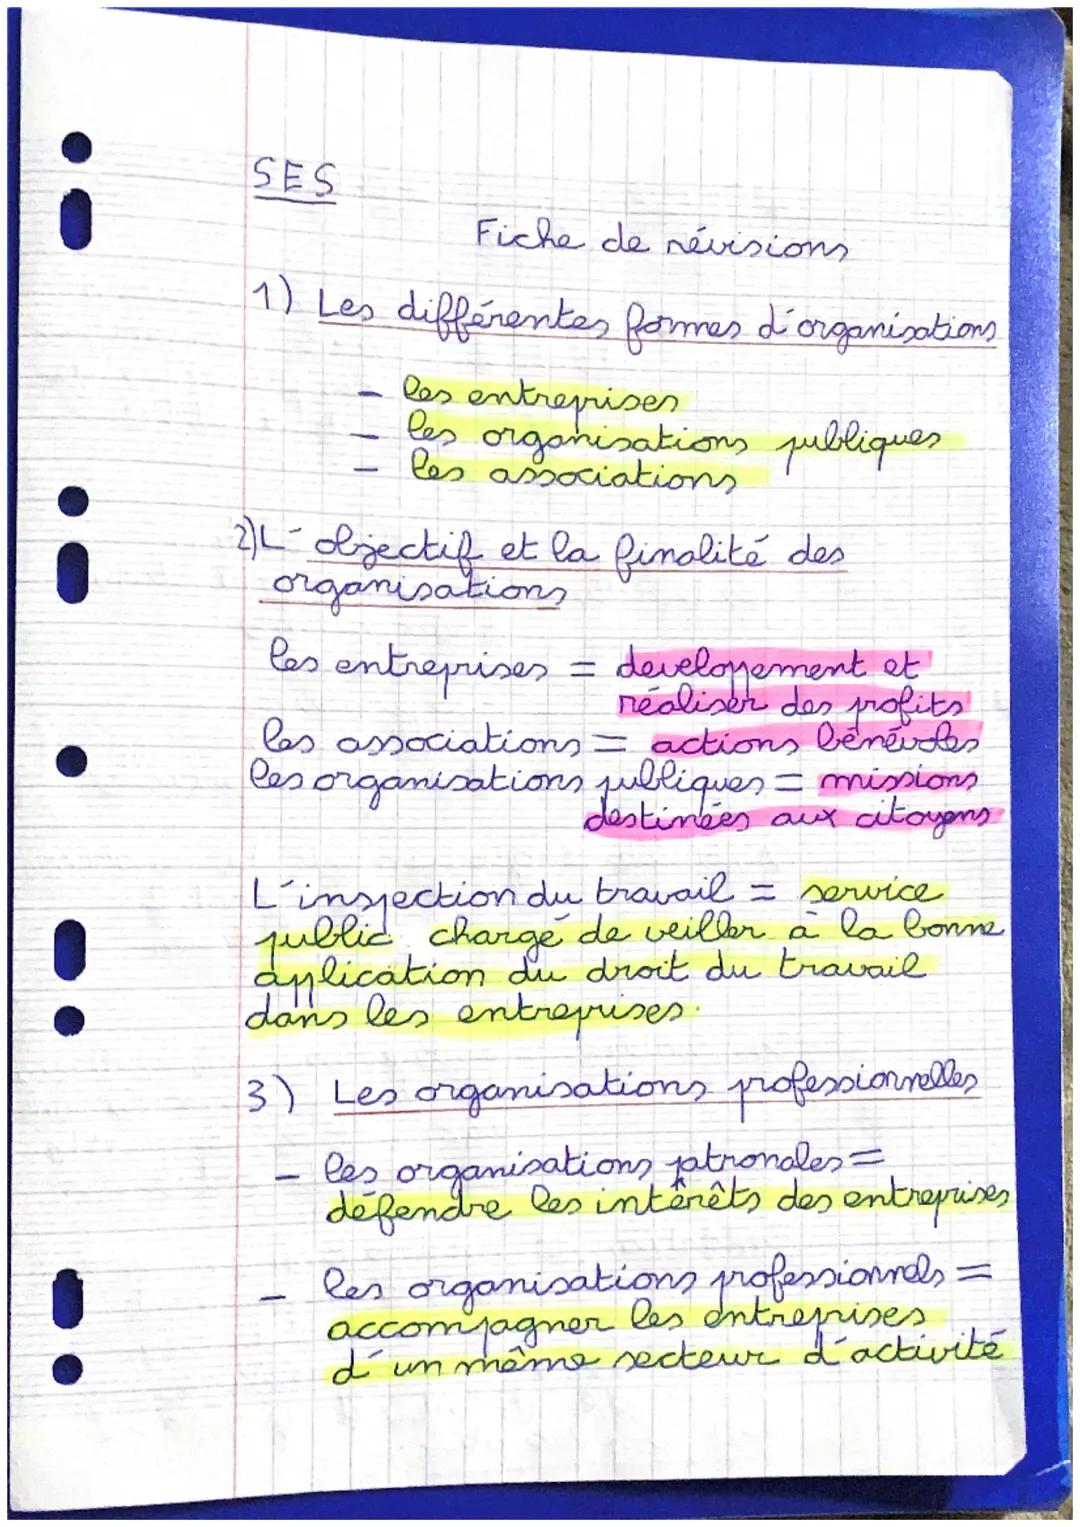 SES
Fiche de révisions
1) Les différentes formes d'organisations
- les entreprises
- les organisations publiques
- les associations
2) L'objectif et la finalité des
organisations
les entreprises = developpement et
réaliser des profits
les associations = actions bénévoles
les organisations publiques = missions
destinées aux citoyens
L'inspection du travail = service
public chargé de veiller à la bonne
application du droit du travail
dans les entreprises.
3) Les organisations professionnelles
- les organisations patronales =
défendre les intérêts des entreprises
- les organisations professionnels =
accompagner les entreprises
d'un même secteur d'activité